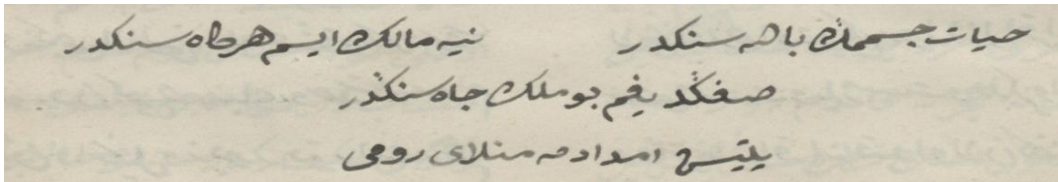 حیات جسممڭ بالله سنكدر نیه مالك ایسم هر كاه سنكدر
صفڭدیغم بو ملك جاه سنڭدر
یتیش امدادمه منلای رومی